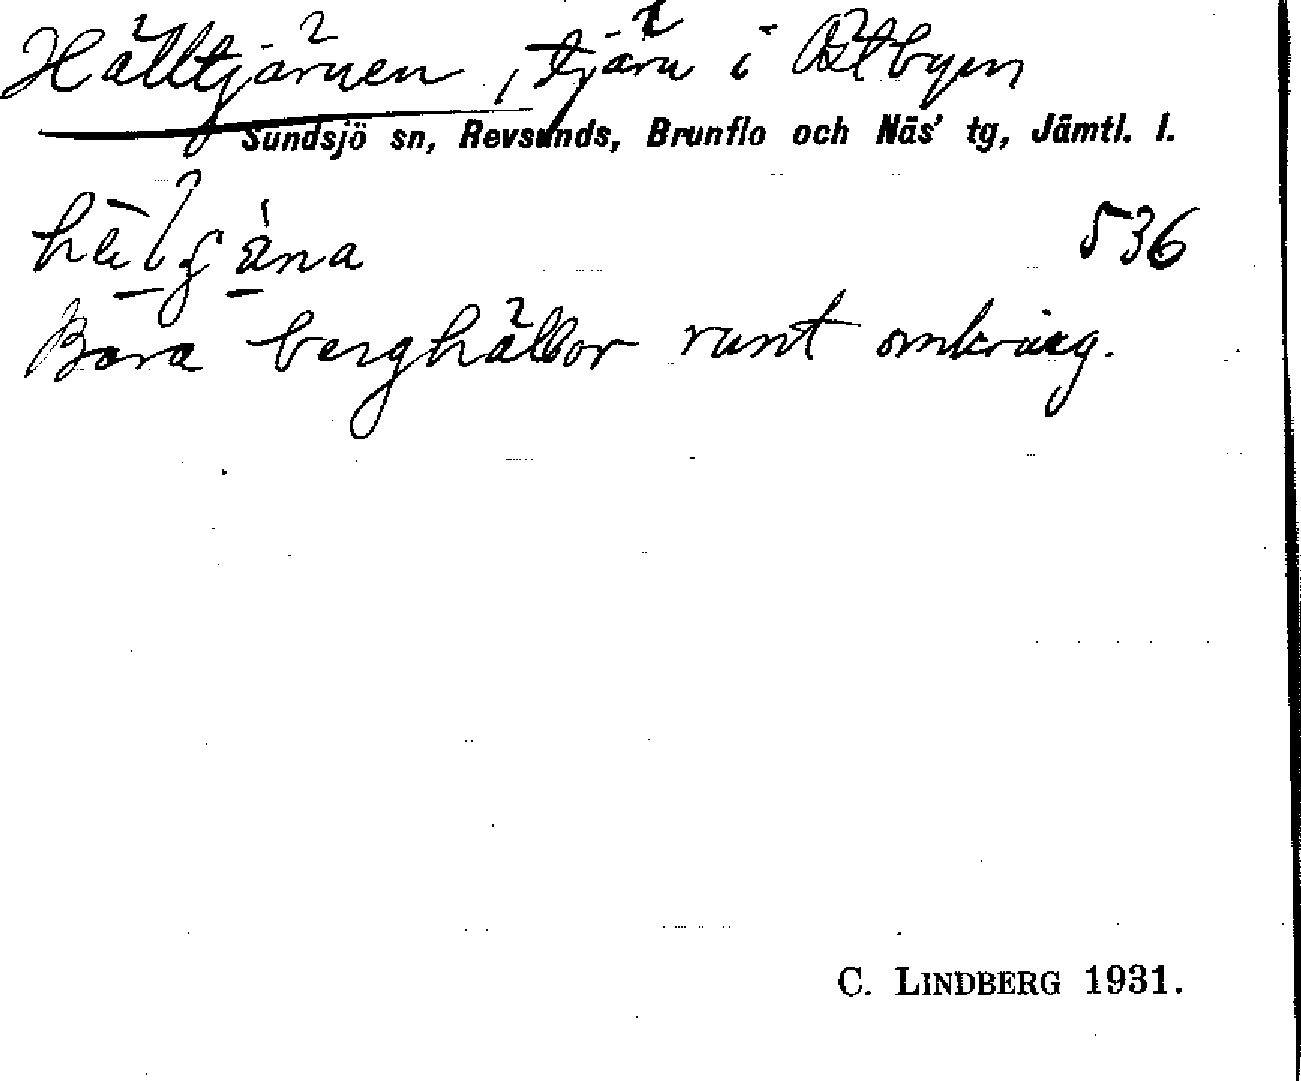 Hälltjärnen, tjärn i Östbyn
Sundsjö sn, Revsunds, Brunflo och Näs' tg, Jämtl. l.
536
Bara berghällor runt omkring.
C. LINDBERG 1931.